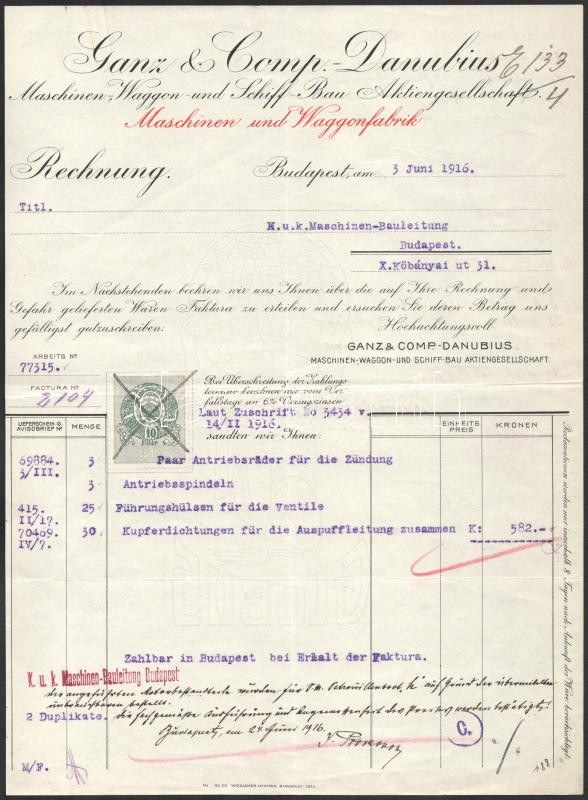 Ganz & Comp.-Danubius
E 133/4
Maschinen-, Waggon- und Schiff-Bau Aktiengesellschaft.
Maschinen und Waggonfabrik
Rechnung.
Budapest, am 3 Juni 1916.
Titl.
K.u.k.Maschinen-Bauleitung
Budapest.
X.Köbányai ut 31.
Im Nachstehenden beehren wir uns Ihnen über die auf Ihre Rechnung und
Gefahr gelieferten Waren Faktura zu erteilen und ersuchen Sie deren Betrag uns
gefälligst gutzuschreiben.
Hochachtungsvoll
GANZ & COMP.-DANUBIUS
MASCHINEN-, WAGGON- UND SCHIFF-BAU AKTIENGESELLSCHAFT.
ARBEITS No
77315.
FACTURA No
2104
Bei Überschreitung der Zahlungs-
termine berechnen wir vom Ver-
fallstage an 6% Verzugszinsen
10
Laut Zuschrift No 3434 v.
14/II 1916.
sandten wir Ihnen:
LIEFERSCHEIN O. AVISOBRIEF No
MENGE
EINHEITS PREIS
KRONEN
69884. 3 Paar Antriebsräder für die Zündung
3/III.
3 Antriebsspindeln
415. 25 Führungshülsen für die Ventile
II/17.
70469. 30 Kupferdichtungen für die Auspuffleitung zusammen K: 582.-
IV/7.
Reklamationen werden nur innerhalb 8 Tagen nach Ankunft der Ware berücksichtigt.
Zahlbar in Budapest bei Erhalt der Faktura.
K. u. k. Maschinen-Bauleitung Budapest
die angeführten Motorbestandteile wurden für
auf Grund der
bestellt.
2 Duplikate.
die fachgemäße Ausführung und Angemessenheit des Preises werden bestätigt.
Budapest, am 24 Juni 1916.
C.
M/F.